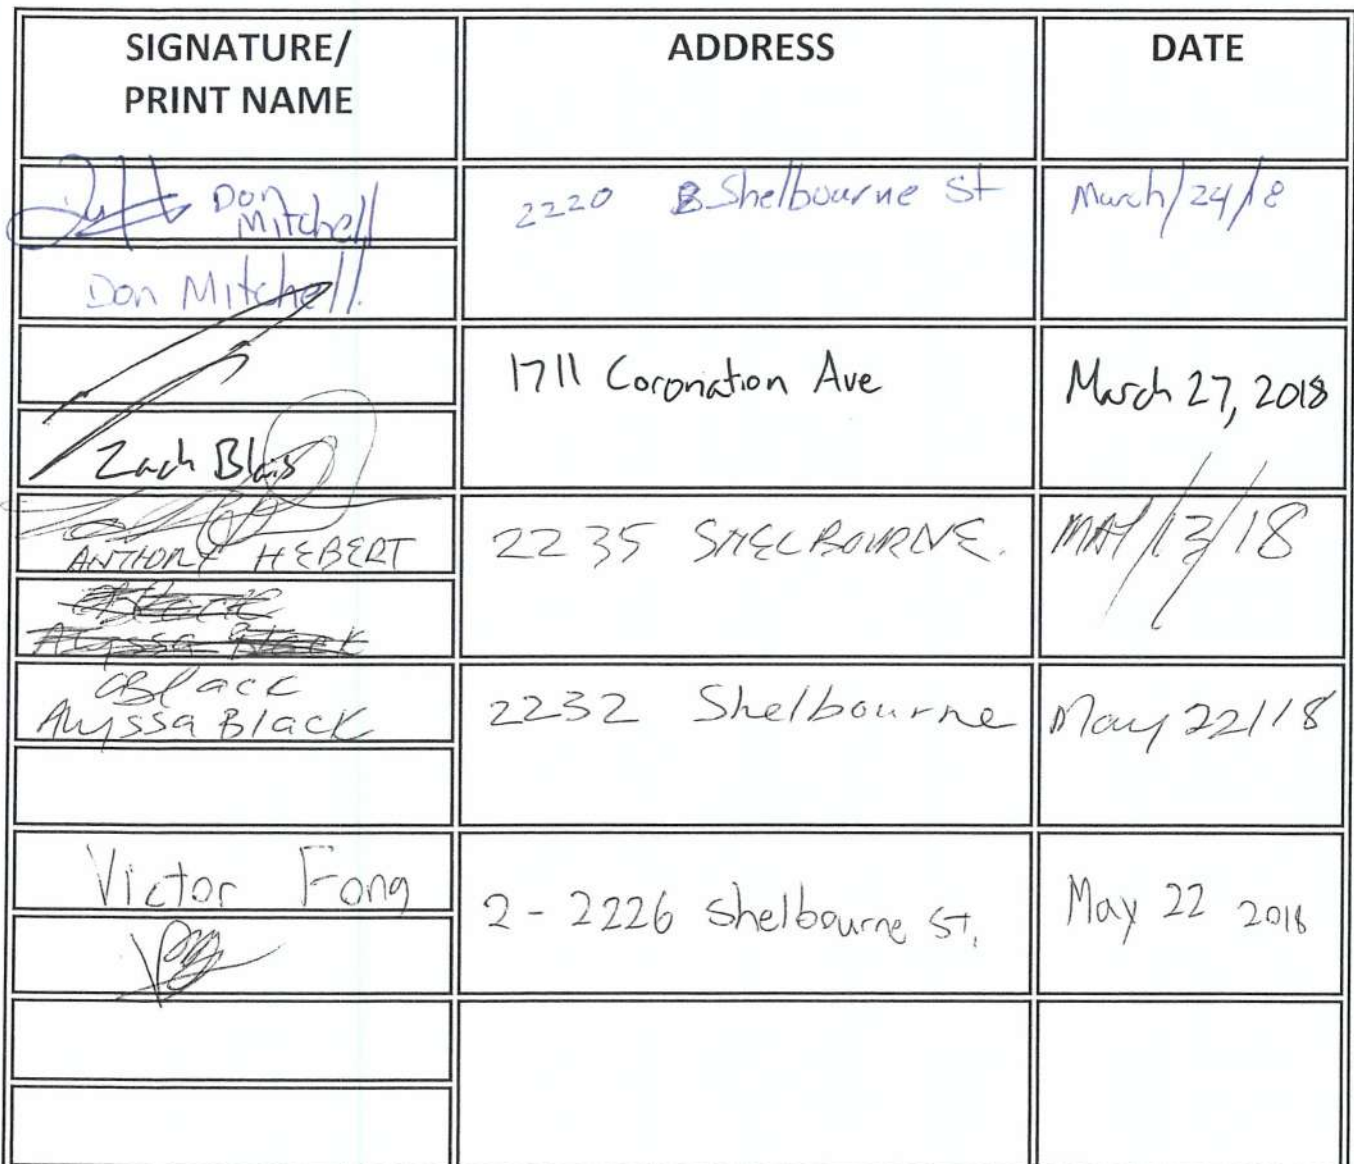 SIGNATURE/
PRINT NAME
ADDRESS
DATE
Don
Mitchell
2220 B Shelbourne St
March/24/18
Don Mitchell
1711 Coronation Ave
March 27, 2018
Zach Blais
ANTHONY HEBERT
2235 SHELBOURNE.
MAY/13/18
Alyssa Black
ABlack
Alyssa Black
2232 Shelbourne
May 22/18
Victor Fong
2-2226 Shelbourne St.
May 22 2018